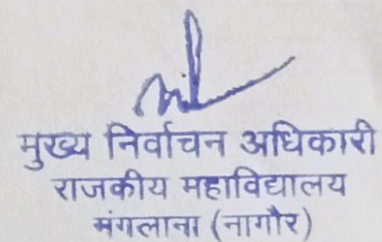 मुख्य निर्वाचन अधिकारी
राजकीय महाविद्यालय
मंगलाना (नागौर)